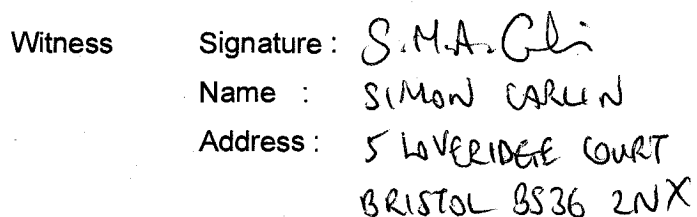 Witness Signature : S.M.A.
Name : SIMON CARLIN
Address : 5 LOVERIDGE COURT
BRISTOL BS36 2NX